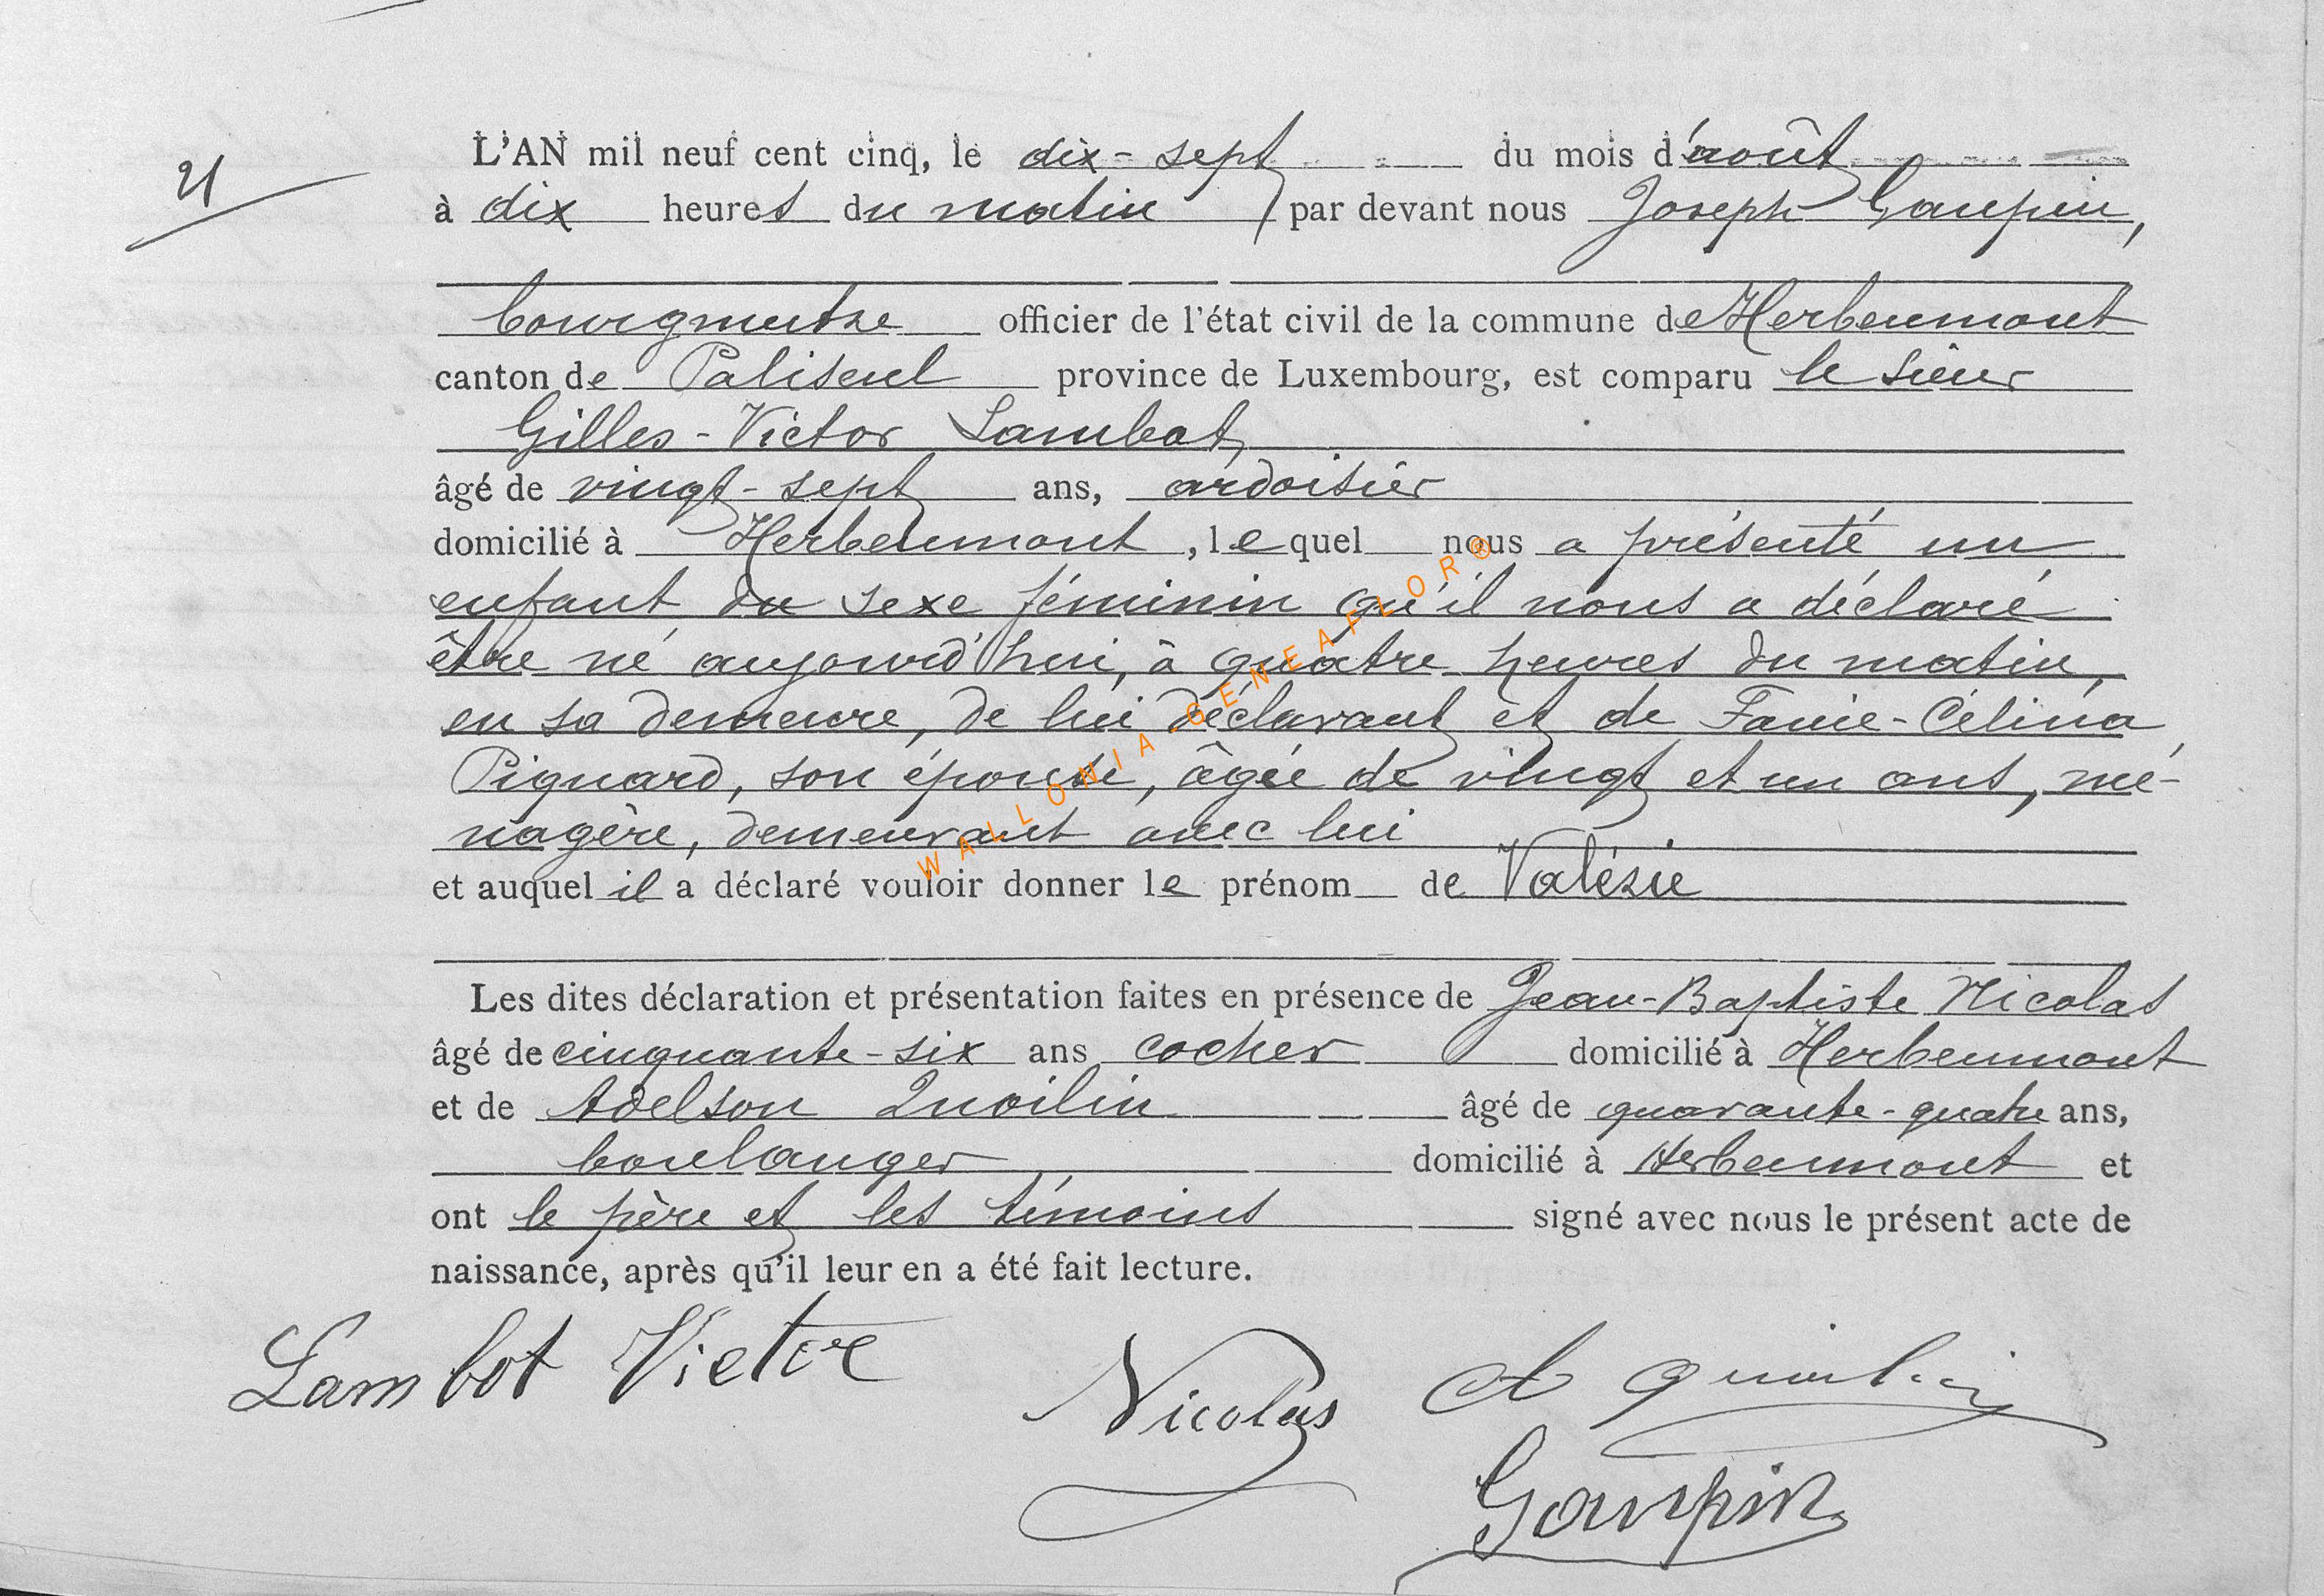 21
L'AN mil neuf cent cinq, le dix-sept du mois d'août
à dix heures du matin, par devant nous Joseph Gaupin,
bourgmestre officier de l'état civil de la commune de Herbeumont
canton de Paliseul province de Luxembourg, est comparu le sieur
Gilles-Victor Lambot,
âgé de vingt-sept ans, ardoisier
domicilié à Herbeumont, lequel nous a présenté un
enfant du sexe féminin qu'il nous a déclaré
être né aujourd'hui, à quatre heures du matin,
en sa demeure, de lui déclarant et de Fanie-Célina
Pignard, son épouse, âgée de vingt et un ans, mé-
nagère, demeurant avec lui
et auquel il a déclaré vouloir donner le prénom de Valésie
Les dites déclaration et présentation faites en présence de Jean-Baptiste Nicolas
âgé de cinquante-six ans cocher domicilié à Herbeumont
et de Adelson Quoilin âgé de quarante-quatre ans,
boulanger domicilié à Herbeumont et
ont le père et les témoins signé avec nous le présent acte de
naissance, après qu'il leur en a été fait lecture.
Lambot Victor
Nicolas
A Quoilin
Gaupin
WALLONIA-GENEAFLOR®